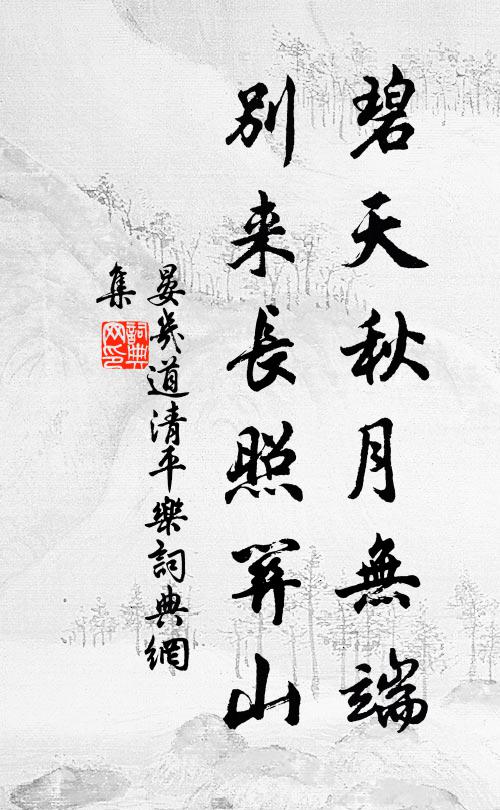 碧天秋月無端
別来長照關山
晏幾道清平樂詞典網
集
詞典網印